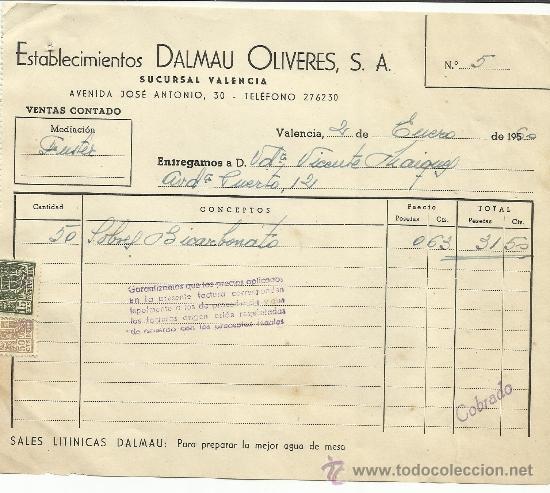 Establecimientos DALMAU OLIVERES, S. A.
SUCURSAL VALENCIA
AVENIDA JOSÉ ANTONIO, 30 - TELÉFONO 276230
N.º 5
VENTAS CONTADO
Mediación
Fuster
Valencia, 2 de Enero de 1950
Entregamos a D. Vda Vicente Maiques
Avda Puerto, 121
Cantidad CONCEPTOS Precio TOTAL
Pesetas Cts. Pesetas Cts.
50 Sobres Bicarbonato 0 63 31 50
Garantizamos que los precios aplicados
en la presente factura corresponden
legalmente a los de procedencia y que
las facturas origen están registradas
de acuerdo con los preceptos legales
Cobrado
SALES LITINICAS DALMAU: Para preparar la mejor agua de mesa
todocoleccion
www.todocoleccion.net